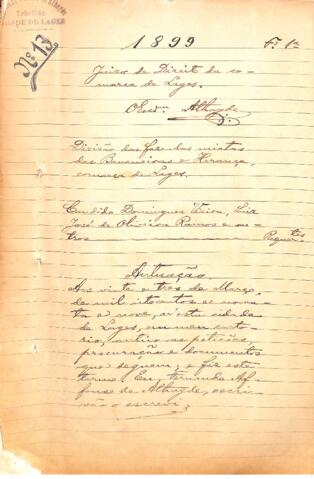 Tabellião
DE DE LAGES
Nº 13
1899
Fª 1ª
Juizo de Direito da co-
marca de Lages.
O Escrvm Athayde
Divisão das fazendas mixtas
das Bananeiras e Herança,
comarca de Lages.
Candido Domingues Vieira, Luiz
José de Oliveira Ramos e ou-
tros
Requertes
Autuação
Aos vinte e tres de Março,
de mil oitocentos e noven-
ta e nove, n'esta cidade
de Lages, em meu carto-
rio, autuo as petições,
procuração e documentos
que seguem; e fiz este
termo. Eu, Fernando Af-
fonso de Athayde, escri-
vão o escrevi.